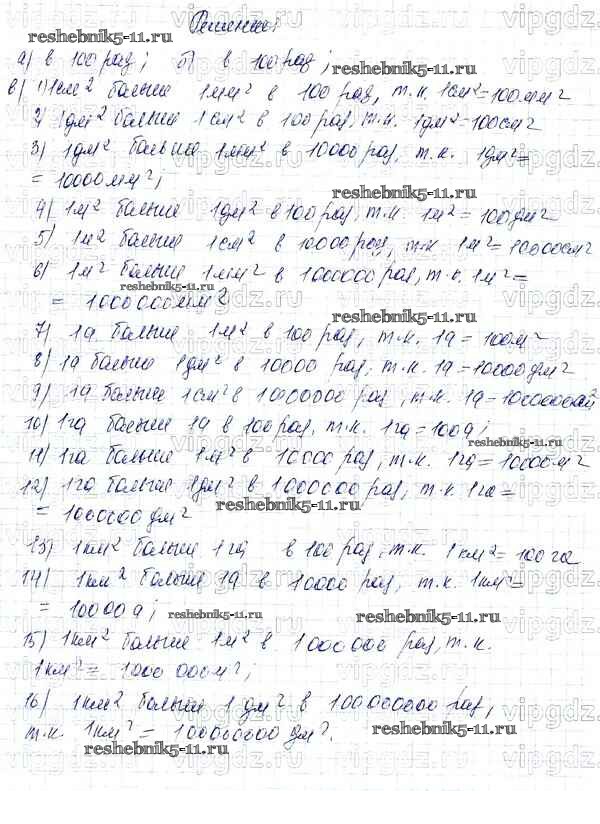 Решение:
reshebnik5-11.ru
а) в 100 раз; б) в 100 раз;
reshebnik5-11.ru
в) 1) 1см² больше 1мм² в 100 раз, т.к. 1см²=100мм²
2) 1дм² больше 1см² в 100 раз, т.к. 1дм²=100см²
3) 1дм² больше 1мм² в 10000 раз, т.к. 1дм²=
= 10000мм²;
reshebnik5-11.ru
4) 1м² больше 1дм² в 100 раз, т.к. 1м²=100дм²
5) 1м² больше 1см² в 10000 раз, т.к. 1м²=10000см²
6) 1м² больше 1мм² в 1000000 раз, т.к. 1м²=
reshebnik5-11.ru
= 1000000мм²
7) 1а больше 1м² в 100 раз, т.к. 1а=100м²
8) 1а больше 1дм² в 10000 раз, т.к. 1а=10000дм²
9) 1а больше 1см² в 1000000 раз, т.к.
10) 1га больше 1а в 100 раз, т.к. 1га=100а;
reshebnik5-11.ru
11) 1га больше 1м² в 10000 раз, т.к. 1га=10000м²
12) 1га больше 1дм² в 1000000 раз, т.к. 1га=
reshebnik5-11.ru
= 1000000дм²
13) 1км² больше 1га в 100 раз, т.к. 1км²=100га
14) 1км² больше 1а в 10000 раз, т.к. 1км²=
= 10000а;
reshebnik5-11.ru reshebnik5-11.ru
15) 1км² больше 1м² в 1000000 раз, т.к.
1км²= 1000 000м²;
16) 1км² больше 1дм² в 100000000 раз,
т.к. 1км²= 100000000дм².
reshebnik5-11.ru
reshebnik5-11.ru
vipgdz.ru